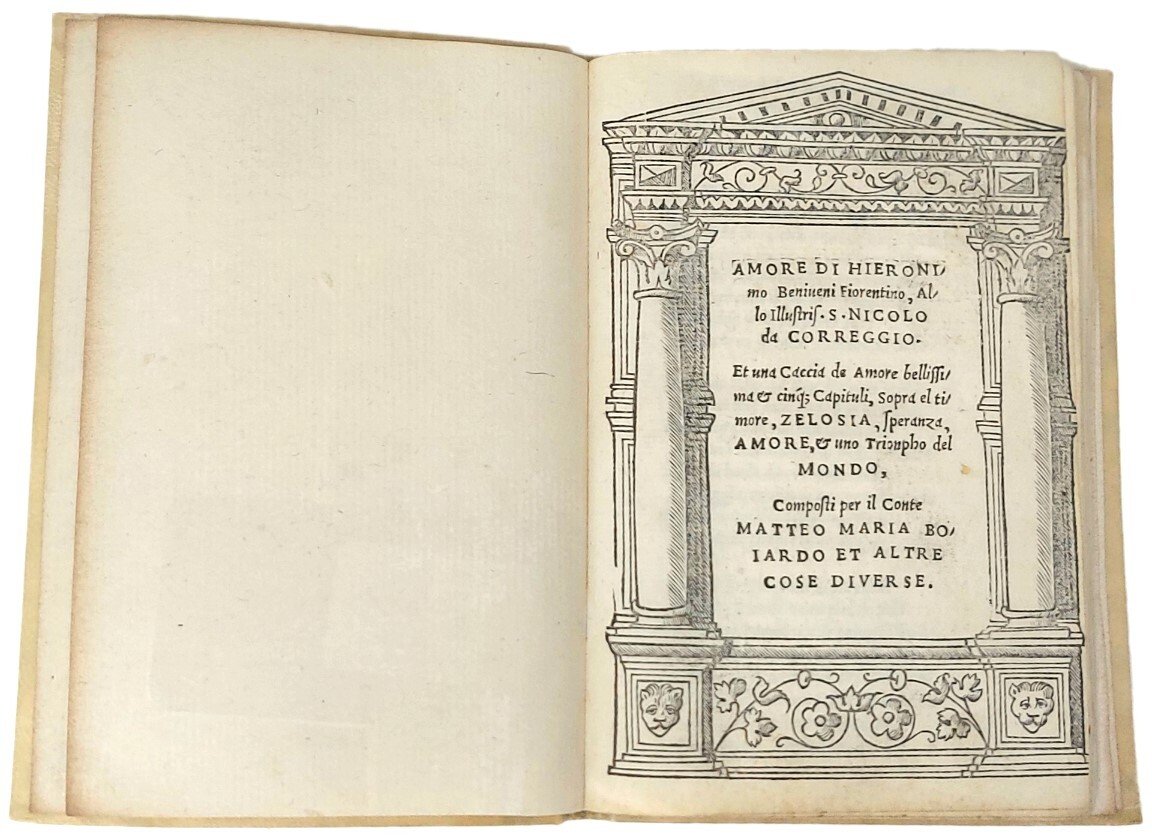 AMORE DI HIERONI/
mo Beniueni Fiorentino, Al/
lo Illuſtriſ. S. NICOLO
da CORREGGIO.
Et una Caccia de Amore belliſſi/
ma & cinq; Capituli, Sopra el ti/
more, ZELOSIA, ſperanza,
AMORE, & uno Trionpho del
MONDO,
Compoſti per il Conte
MATTEO MARIA BO/
IARDO ET ALTRE
COSE DIVERSE.